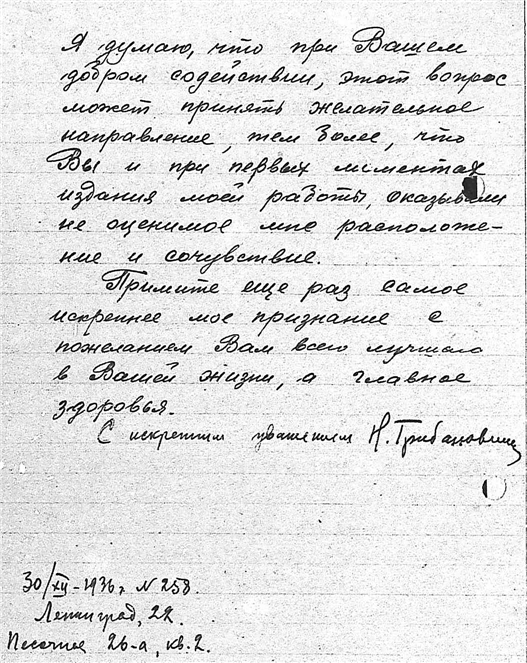 Я думаю, что при Вашем
добром содействии, этот вопрос
может принять желательное
направление, тем более, что
Вы и при первых моментах
издания моей работы, оказывали
не оценимое мне расположе-
ние и сочувствие.
Примите еще раз самое
искреннее мое признание с
пожеланием Вам всего лучшего
в Вашей жизни, а главное
здоровья.
С искренним уважением Н.
30/XII-1936г. N 258.
Ленинград, 22.
Песочная 26-а, кв. 2.